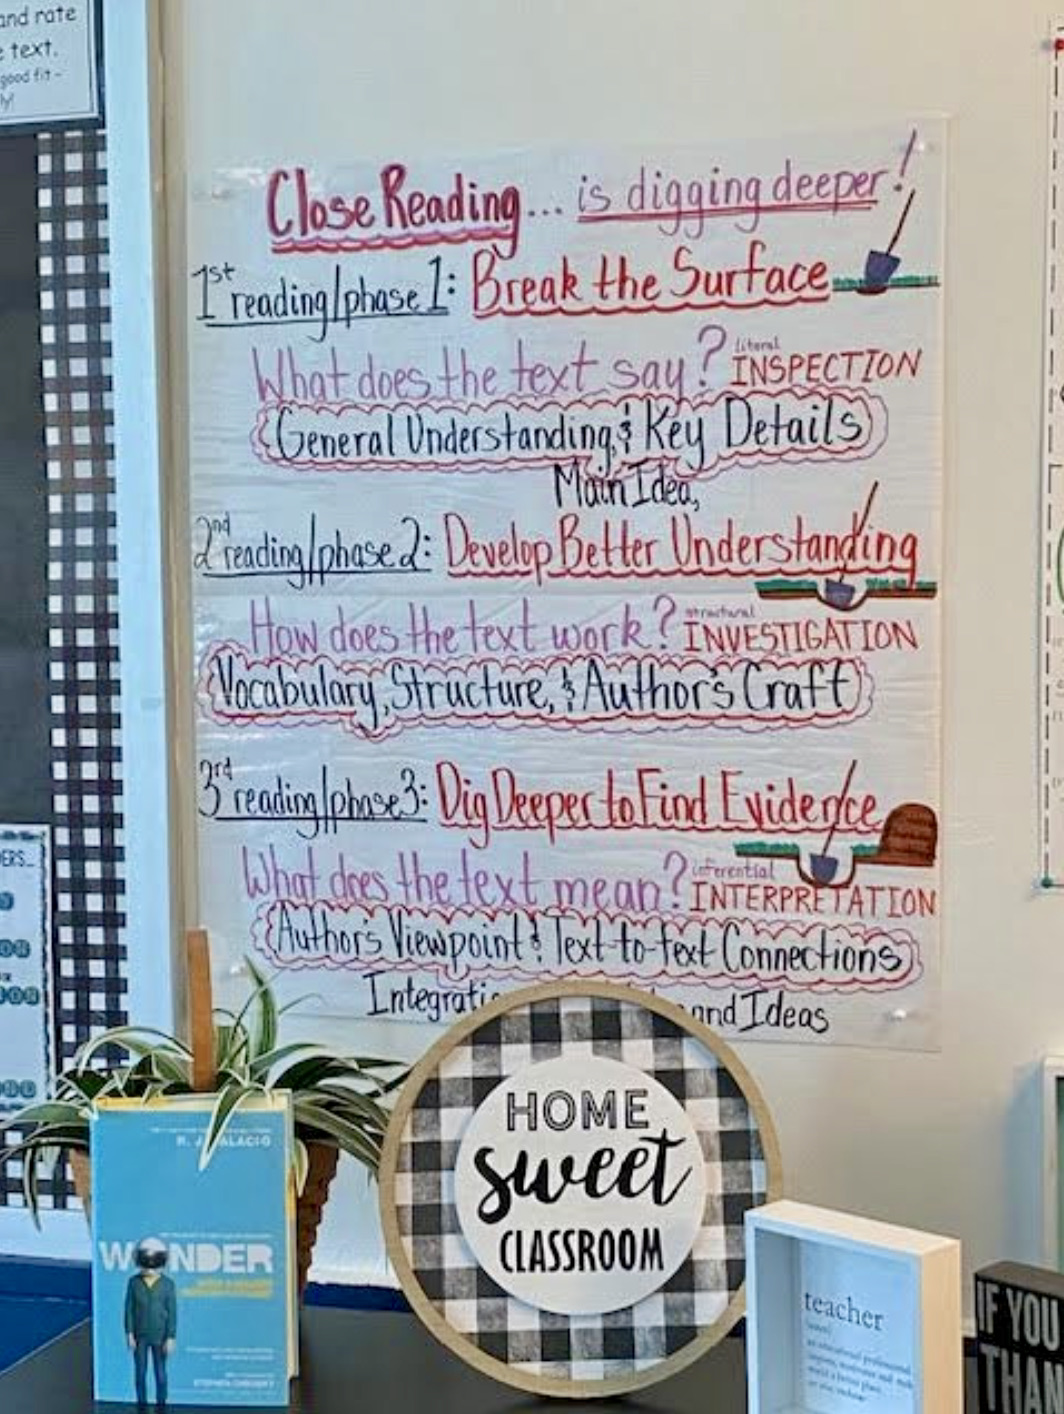 and rate
text.
good fit -
Close Reading... is digging deeper!
1st reading/phase 1: Break the Surface
What does the text say? literal INSPECTION
General Understanding & Key Details
Main Idea,
2nd reading/phase 2: Develop Better Understanding
How does the text work? structural INVESTIGATION
Vocabulary, Structure, & Author's Craft
3rd reading/phase 3: Dig Deeper to Find Evidence
What does the text mean? inferential INTERPRETATION
Authors Viewpoint & Text-to-text Connections
Integrati and Ideas
R. J. PALACIO
WONDER
HOME
sweet
CLASSROOM
teacher
IF YOU
THAN